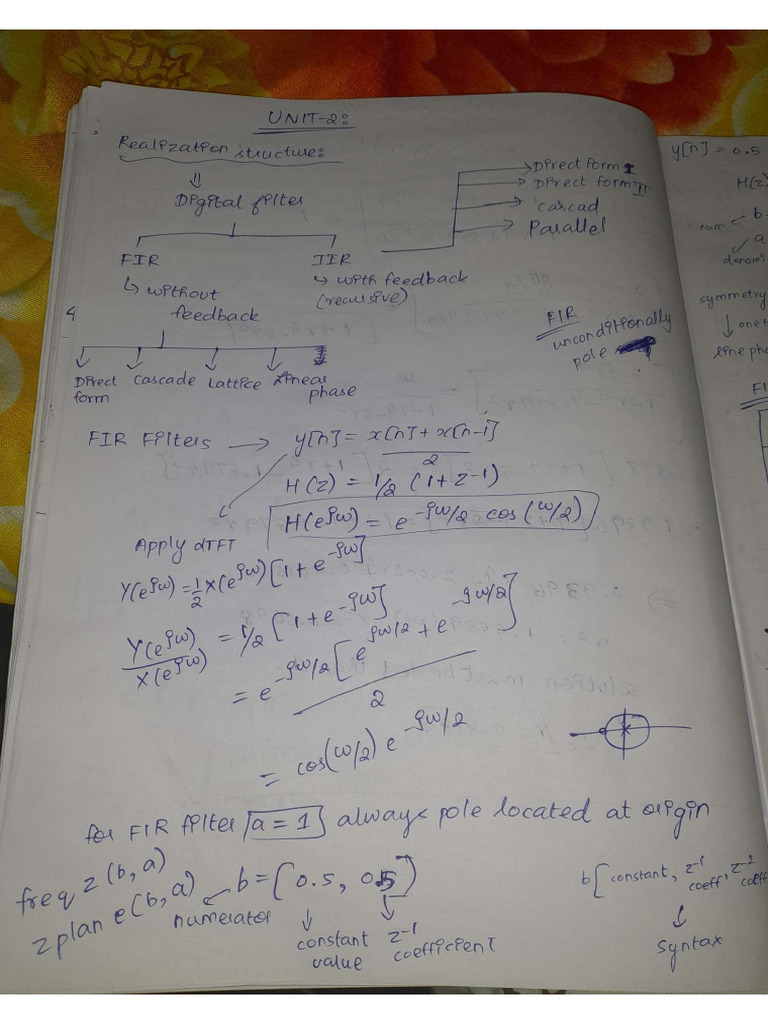 UNIT-2:
Realization structure:
⇓
Digital filter
FIR
↳ without
feedback
IIR
↳ with feedback
(recursive)
→ Direct form I
→ Direct form II
→ cascad
→ Parallel
4
Direct
form
cascade
Lattice
Linear
phase
FIR
unconditionally
pole
FIR Filters → y[n] = x[n] + x[n-1]
2
H(z) = 1/2 (1 + z-1)
H(e^jω) = e^-jω/2 cos(ω/2)
Apply dTFT
Y(e^jω) = 1/2 X(e^jω) [1 + e^-jω]
Y(e^jω)
X(e^jω)
= 1/2 [1 + e^-jω]
= e^-jω/2 [e^jω/2 + e^-jω/2]
2
= cos(ω/2) e^-jω/2
for FIR filter a = 1 always pole located at origin
freqz(b, a)
zplane(b, a)
b = [0.5, 0.5]
numerator
constant
value
z^-1
coefficient
b[constant, z^-1 coeff, z^-2 coeff
↓
syntax
y[n] = 0.5
H(z)
num
b
a
denomi
symmetry
↓ one
line pha
FI